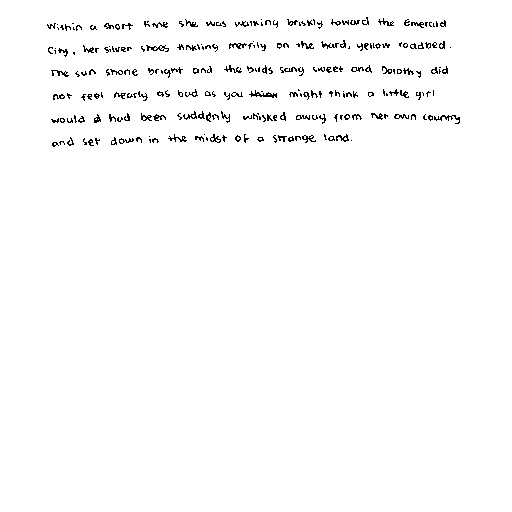 Within a short time she was walking briskly toward the Emerald
City, her silver shoes tinkling merrily on the hard, yellow roadbed.
The sun shone bright and the birds sang sweet and Dorothy did
not feel nearly as bad as you might think a little girl
would had been suddenly whisked away from her own country
and set down in the midst of a strange land.